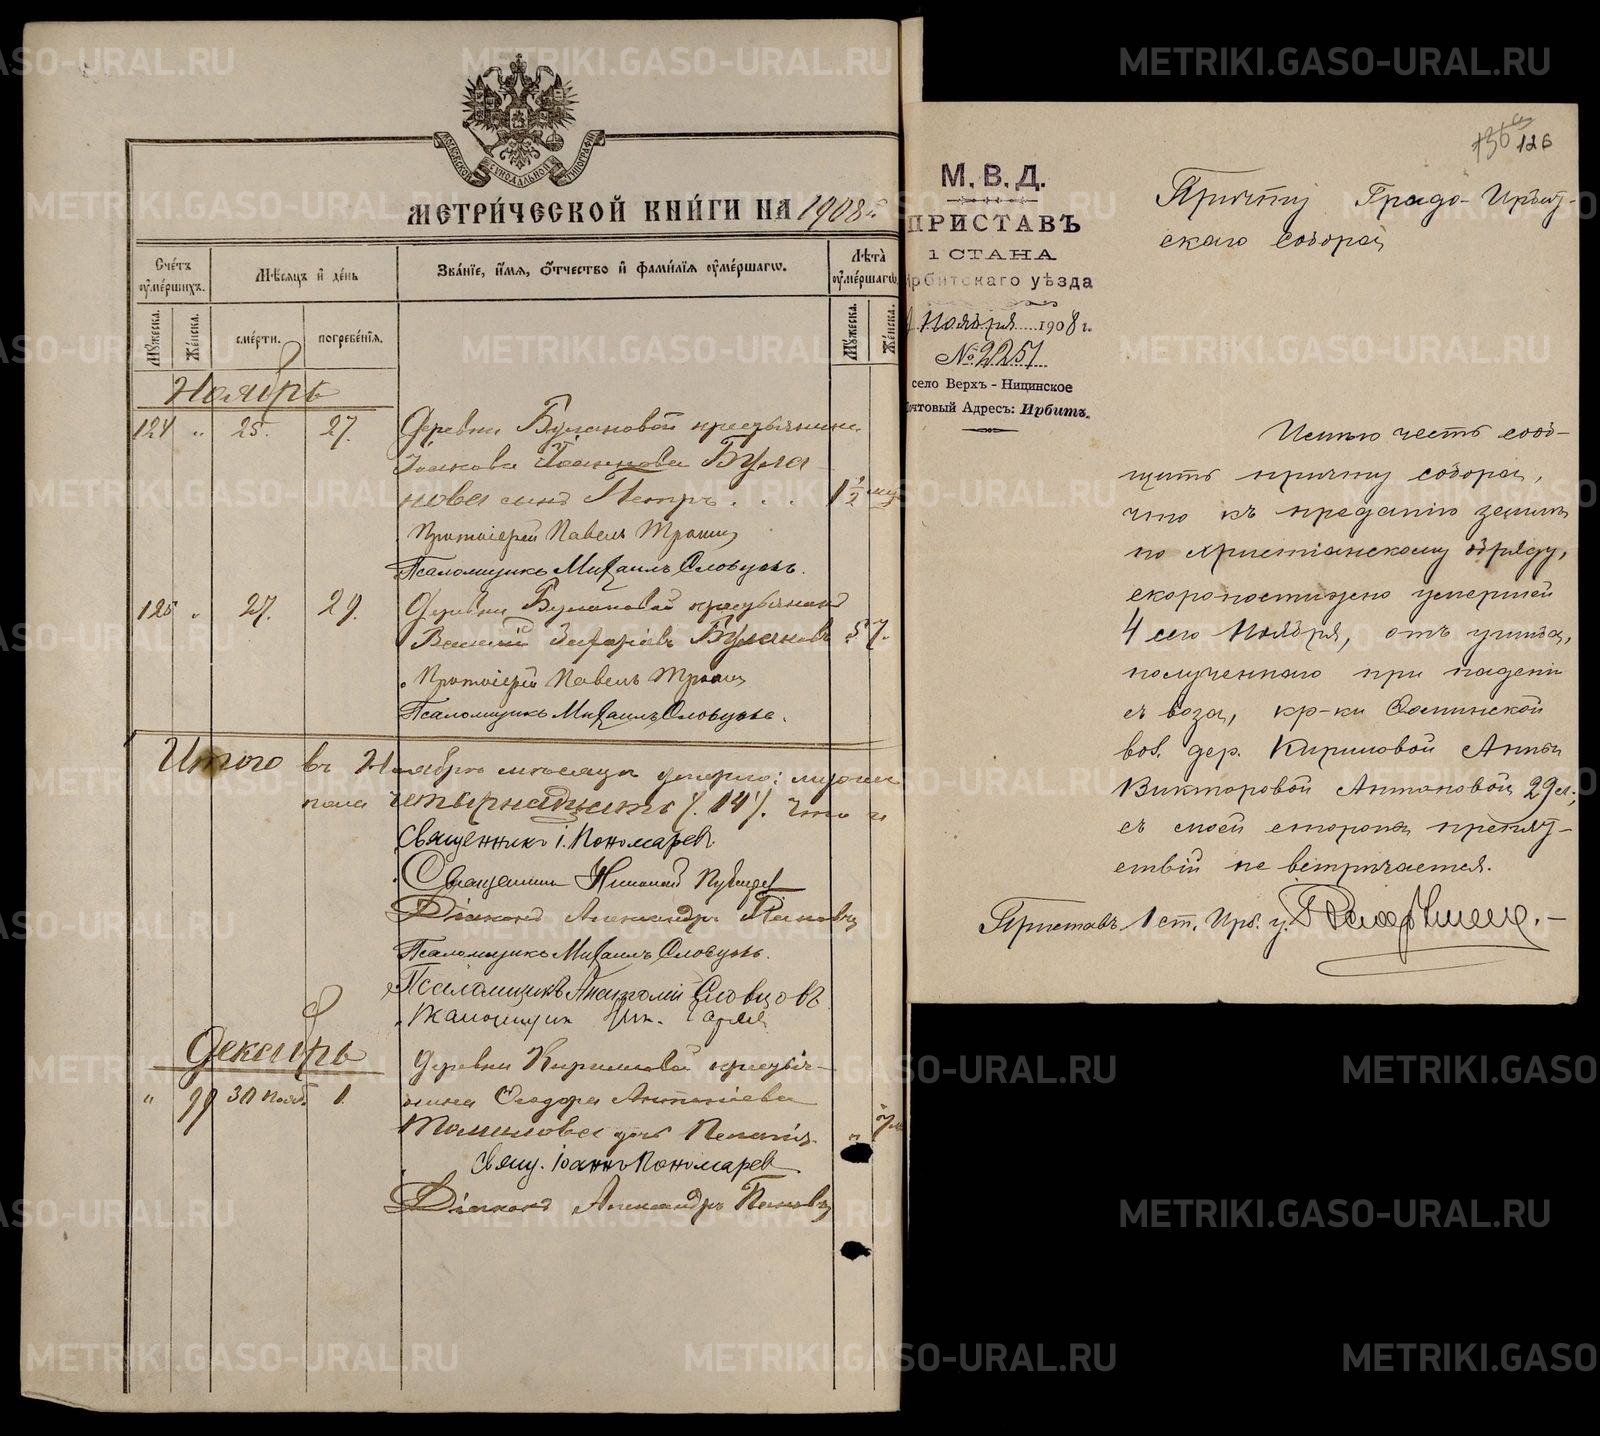 МОСКОВСКОЙ СѴНОДАЛЬНОЙ ТИПОГРАФІИ
МЕТРИ́ЧЕСКОЙ КНИ́ГИ НА 1908 г.
Сче́тъ ᲂумершихъ.
Мѣсяцъ и день
Зва́нїе, и́мя, ѻ҆́тчество и҆ фами́лїя ᲂу҆ме́ршагѡ.
Лѣта̀ ᲂу҆ме́ршагѡ
Мꙋжеска.
Женска.
сме́рти.
погребе́нїя.
Мꙋжеска.
Женска.
Ноябрь
124 " 25. 27. Деревни Булановой крестьянина
Іоакова Іоаннова Була-
нова сынъ Петръ . . . 1 1/2 мѣс
Протоіерей Павелъ
Псаломщикъ Михаилъ Словцовъ.
125 " 27. 29. Деревни Булановой крестьянинъ
Василій Захаріевъ Булановъ 57.
Протоіерей Павелъ
Псаломщикъ Михаилъ Словцовъ.
Итого въ Ноябрѣ мѣсяцѣ умерло: мужска
пола четырнадцать /.14/. Что и
Священникъ І. Пономаревъ
Священникъ Николай
Діаконъ Александръ Поповъ
Псаломщикъ Михаилъ Словцовъ.
Псаломщикъ Анатолій Словцовъ
Псаломщикъ Ник.
Декабрь
" 99 30 Нояб. 1. Деревни Кирилловой крестья-
нина Ѳеодора Антоніева
Томилова дочь Пелагія.
Свящ. Іоаннъ Пономаревъ
Діаконъ Александръ Поповъ
136 а 126
М. В. Д.
ПРИСТАВЪ
1 СТАНА
Ирбитскаго уѣзда
Ноября 1908 г.
№ 2251
село Верхъ-Ницинское
Почтовый Адресъ: Ирбитъ.
Причту Градо-Ирбит-
скаго собора
Имѣю честь сооб-
щить причту собора,
что къ преданію землѣ
по христіанскому обряду,
скоропостижно умершей
4 сего Ноября, отъ ушиба,
полученнаго при паденіи
съ воза, кр-ки
вол. дер. Кириловой Анны
Викторовой Антоновой 29 л.,
съ моей стороны препят-
ствій не встрѣчается.
Приставъ 1 ст. Ирб. у.
METRIKI.GASO-URAL.RU